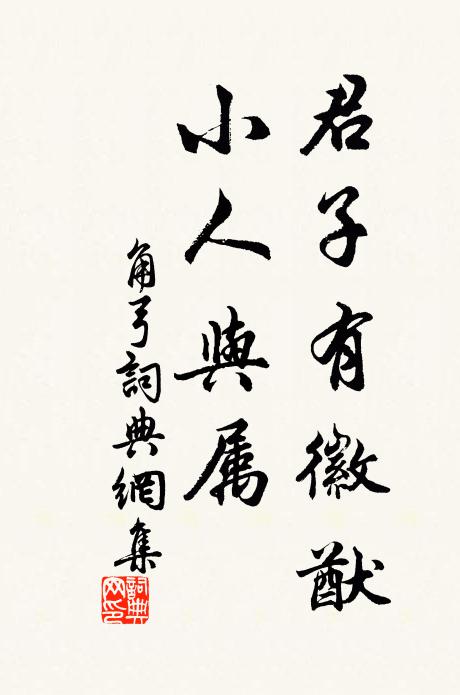 君子有徽猷
小人與属
角弓詞典網集
詞典网印